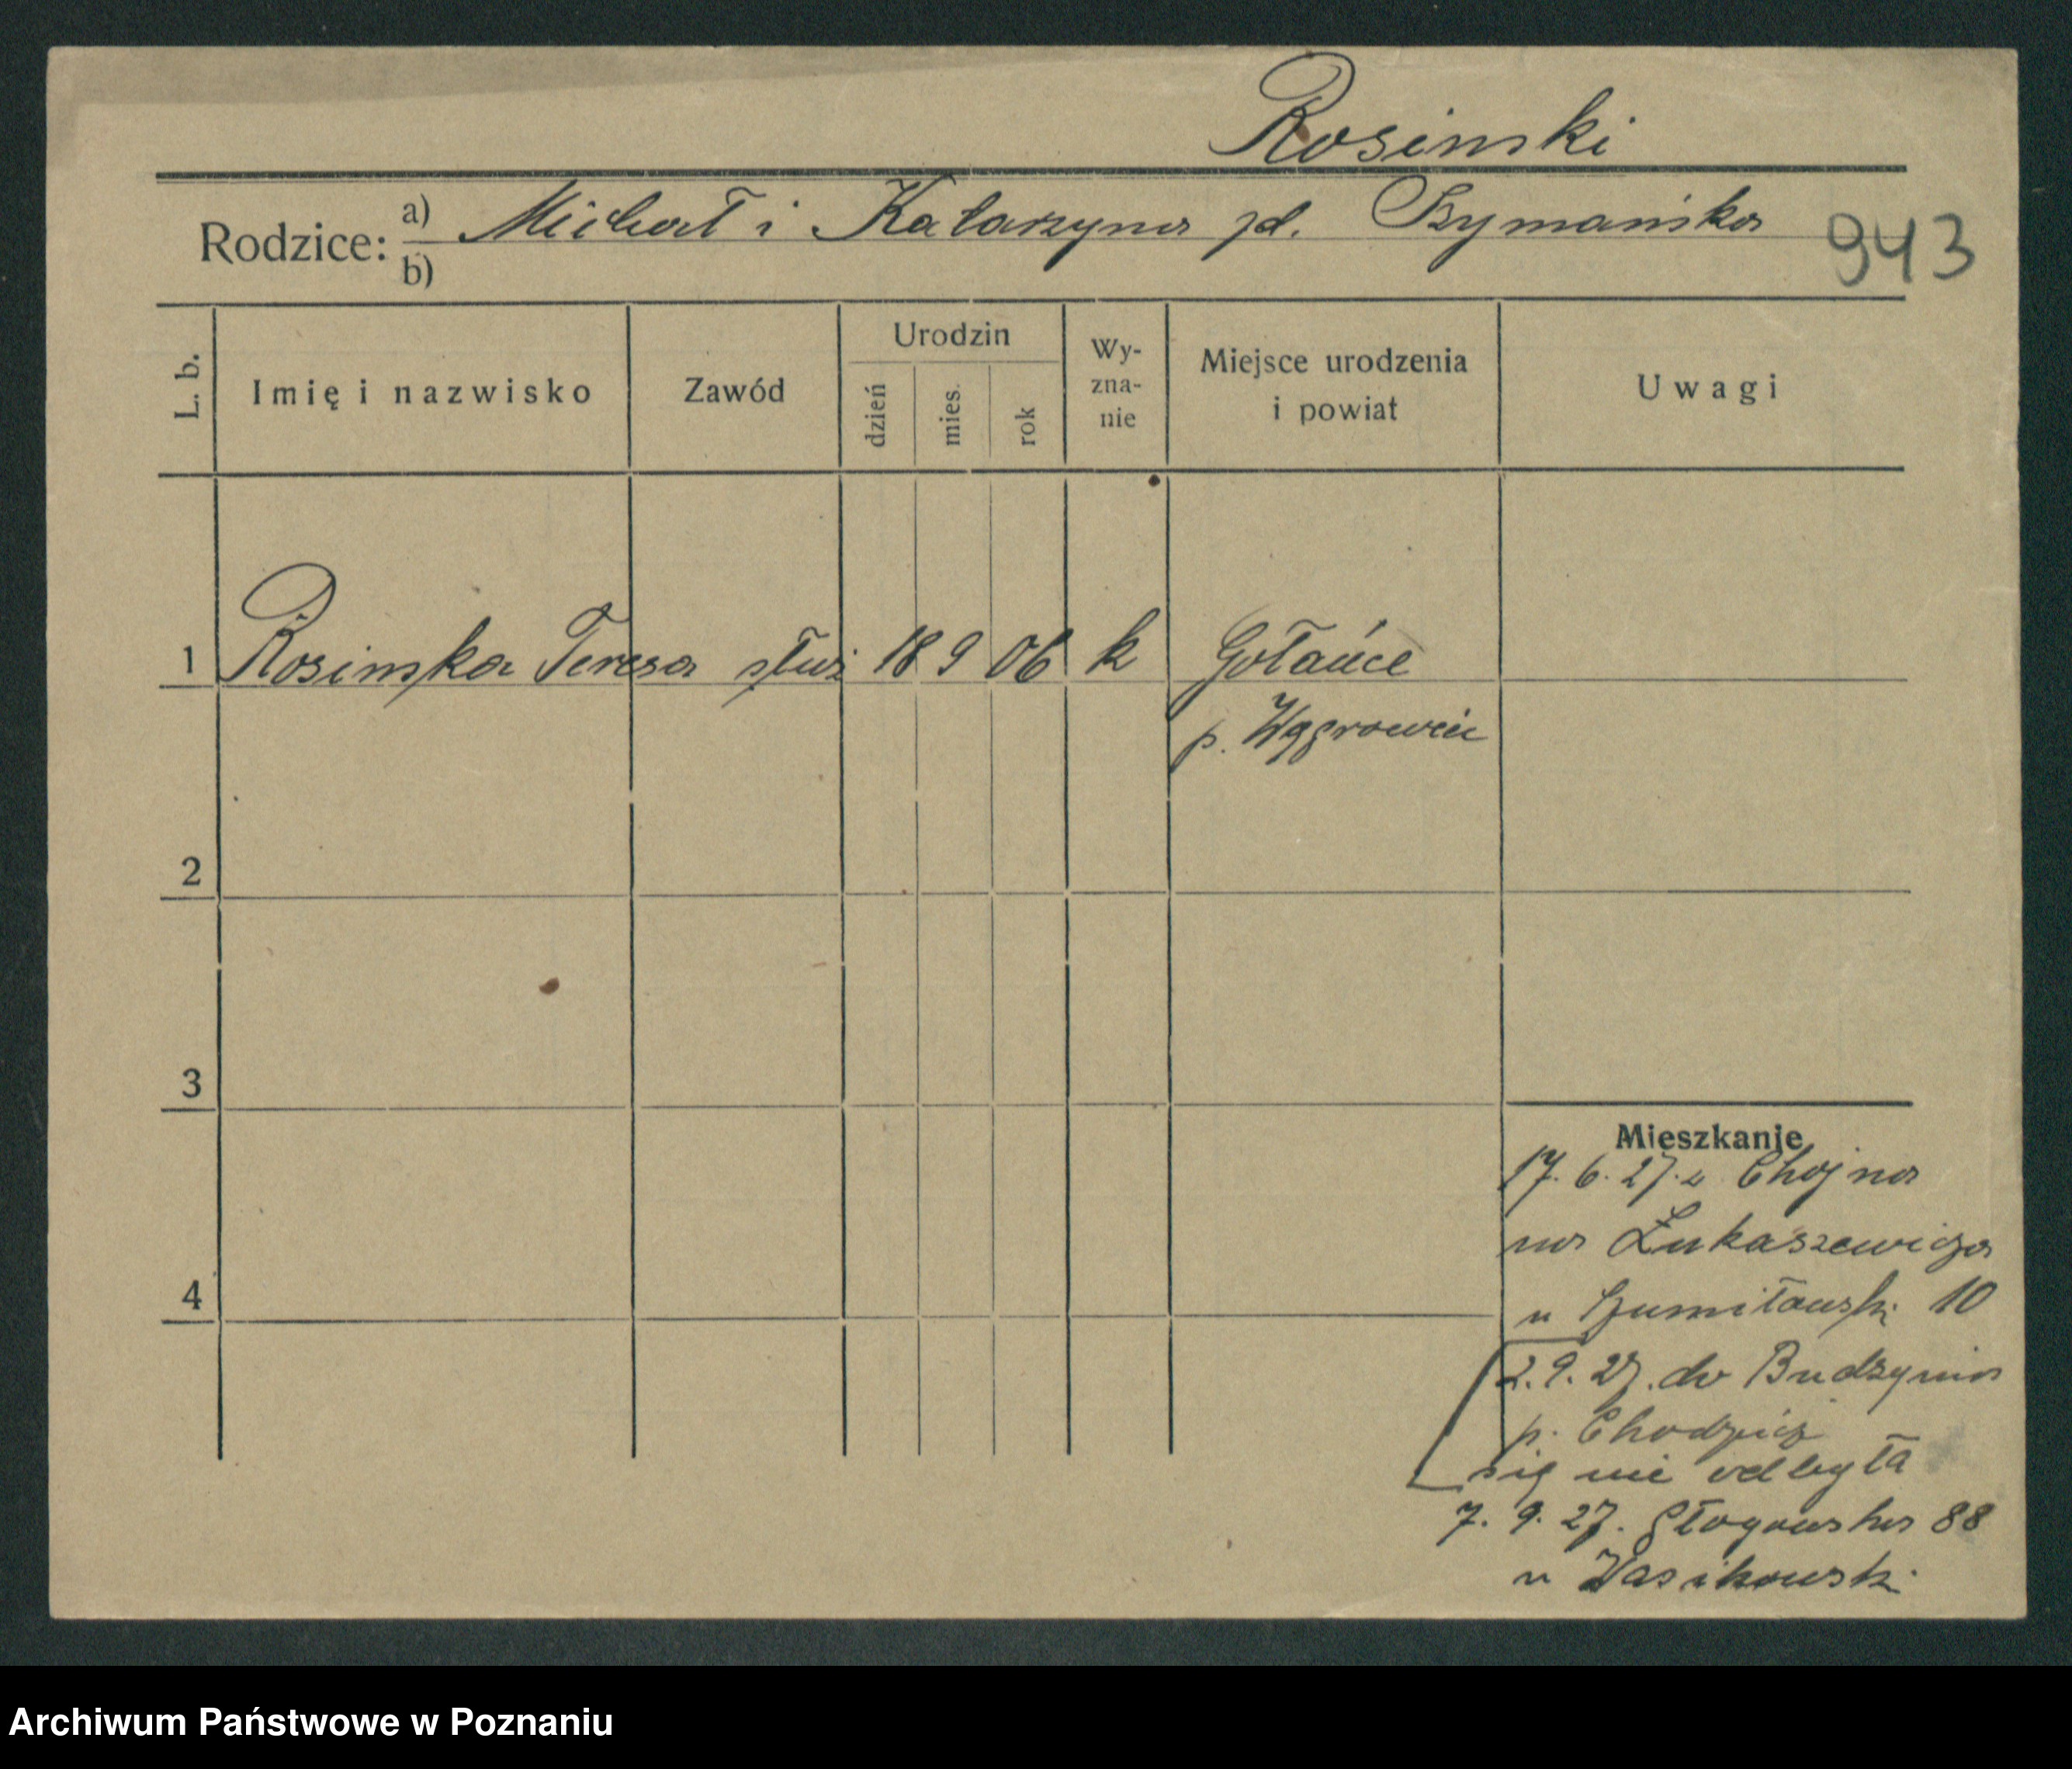 Rosinski
Rodzice: a) Michał i Katarzyna zd. Szymańska
b)
943
L. b.
Imię i nazwisko
Zawód
Urodzin
dzień
mies.
rok
Wy-
zna-
nie
Miejsce urodzenia
i powiat
Uwagi
1 Rosinska Teresa służ 18 9 06 k Gołańce
p. Wągrowiec
2
3
4
Mieszkanie
17. 6. 27. z Chojna
na Łukaszewicza
u Szumiłowski 10
2. 9. 27. do Budzynia
p. Chodzież
się nie odbyła
7. 9. 27. Głogowska 88
u Wasikowski
Archiwum Państwowe w Poznaniu